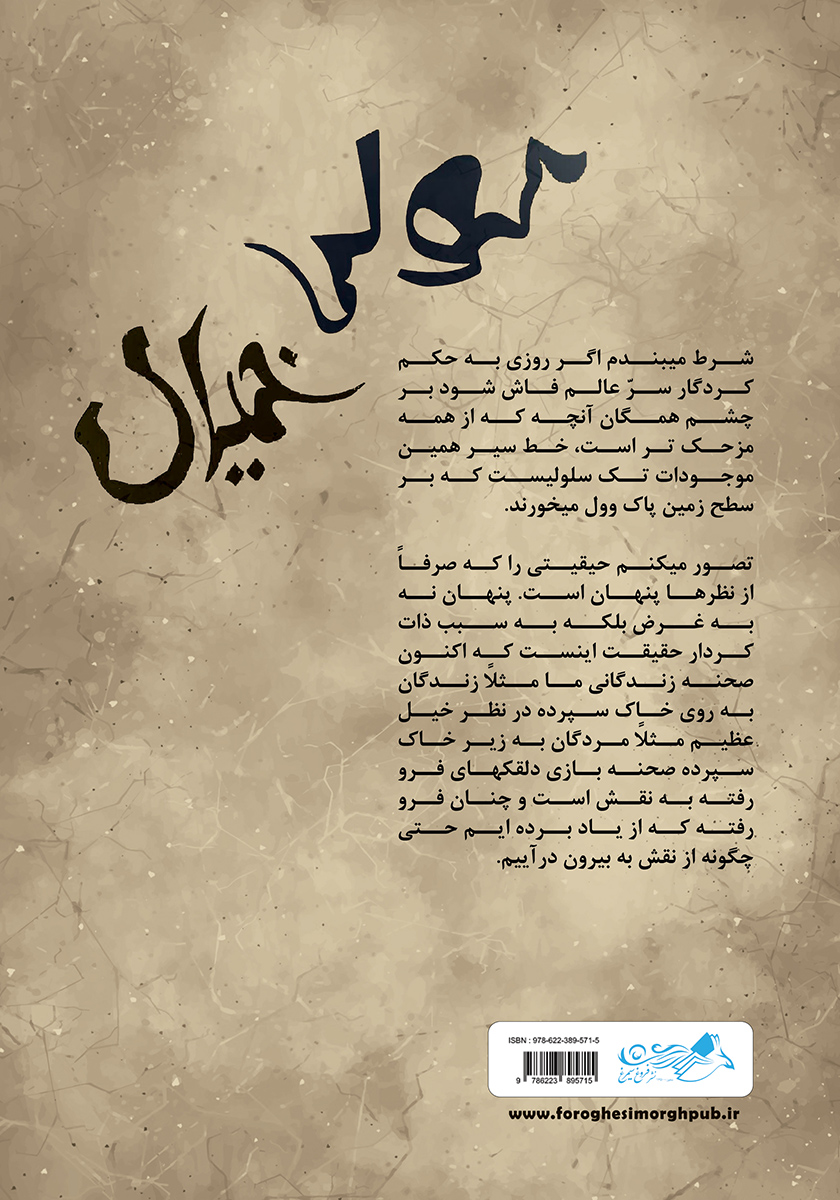 خیال
شرط میبندم اگر روزی به حکم
کردگار سرّ عالم فاش شود بر
چشم همگان آنچه که از همه
مزحک تر است، خط سیر همین
موجودات تک سلولیست که بر
سطح زمین پاک وول میخورند.
تصور میکنم حیقیتی را که صرفاً
از نظرها پنهان است. پنهان نه
به غرض بلکه به سبب ذات
کردار حقیقت اینست که اکنون
صحنه زندگانی ما مثلاً زندگان
به روی خاک سپرده در نظر خیل
عظیم مثلاً مردگان به زیر خاک
سپرده صحنه بازی دلقکهای فرو
رفته به نقش است و چنان فرو
رفته که از یاد برده ایم حتی
چگونه از نقش به بیرون درآییم.
ISBN : 978-622-389-571-5
9 786223 895715
نشر فروغ سیمرغ
www.foroghesimorghpub.ir